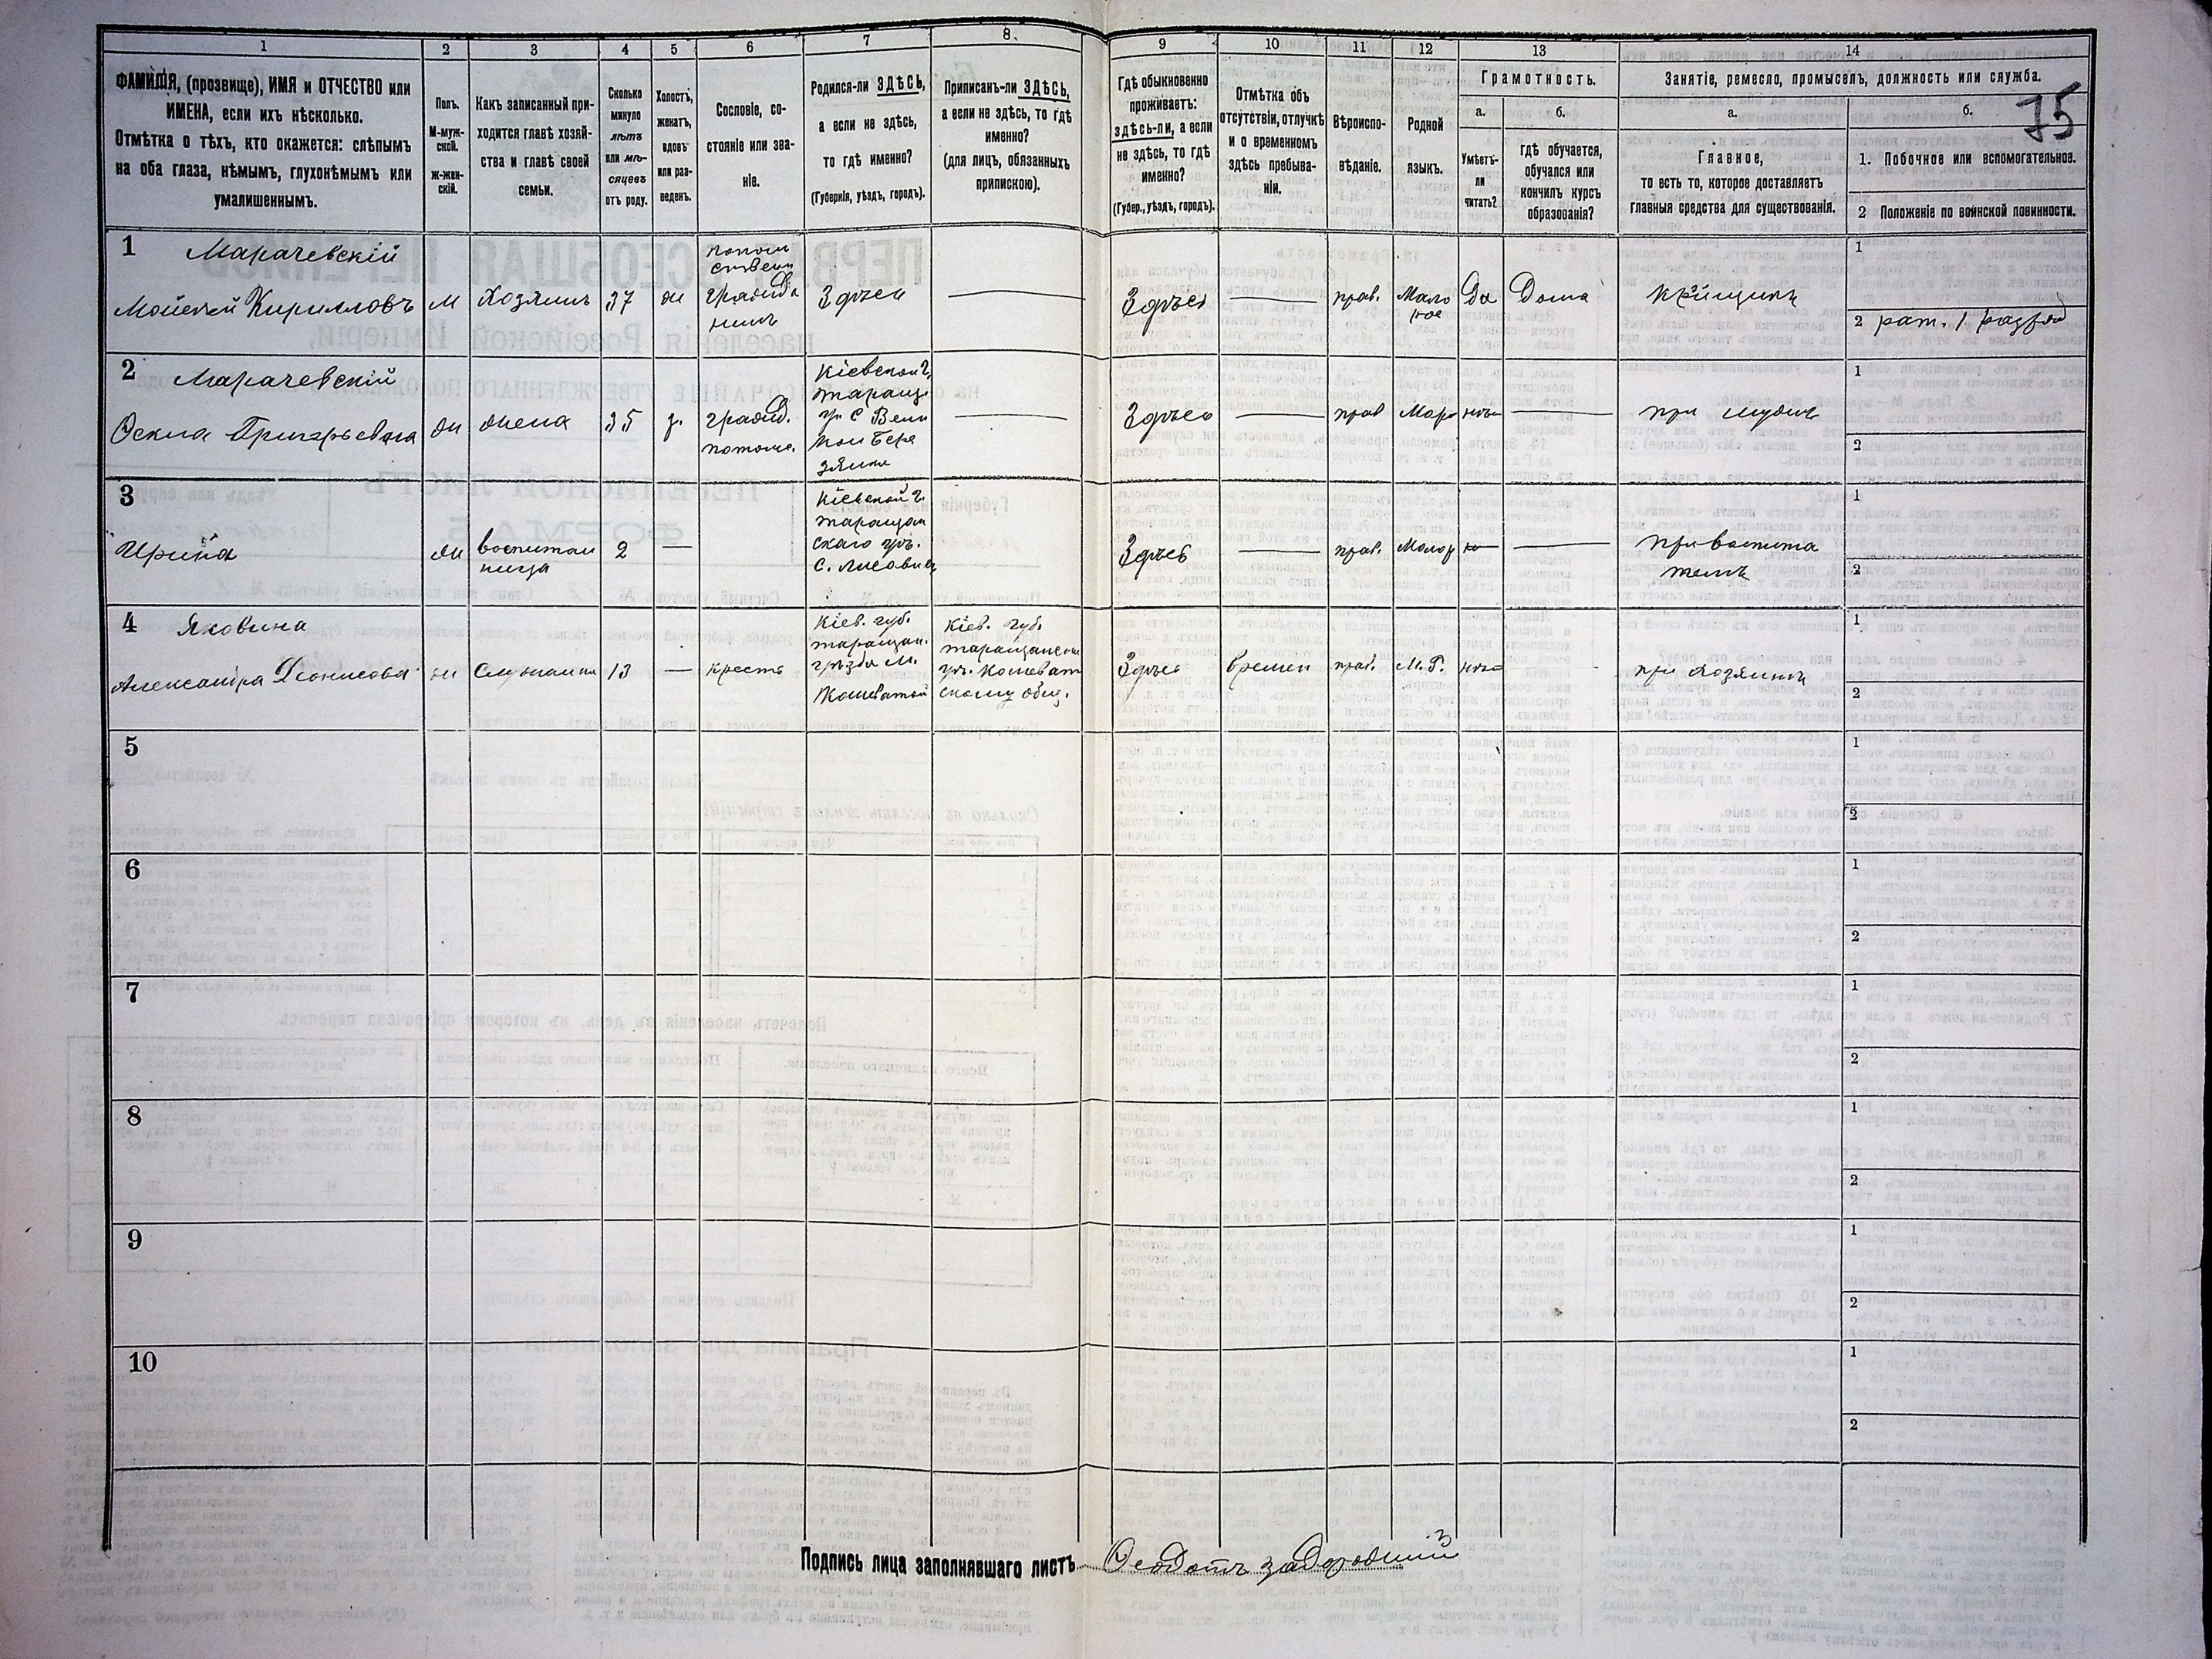 1 2 3 4 5 6 7 8. 9 10 11 12 13 14
ФАМИЛІЯ, (прозвище), ИМЯ и ОТЧЕСТВО или
ИМЕНА, если ихъ нѣсколько.
Отмѣтка о тѣхъ, кто окажется: слѣпымъ
на оба глаза, нѣмымъ, глухонѣмымъ или
умалишеннымъ.
Полъ.
М-муж-
ской.
ж-жен-
скій.
Какъ записанный при-
ходится главѣ хозяй-
ства и главѣ своей
семьи.
Сколько
минуло
лѣтъ
или мѣ-
сяцевъ
отъ роду.
Холостъ,
женатъ,
вдовъ
или раз-
веденъ.
Сословіе, со-
стояніе или зва-
ніе.
Родился-ли ЗДѢСЬ,
а если не здѣсь,
то гдѣ именно?
(Губернія, уѣздъ, городъ).
Приписанъ-ли ЗДѢСЬ,
а если не здѣсь, то гдѣ
именно?
(для лицъ, обязанныхъ
припискою).
Гдѣ обыкновенно
проживаетъ:
здѣсь-ли, а если
не здѣсь, то гдѣ
именно?
(Губер., уѣздъ, городъ).
Отмѣтка объ
отсутствіи, отлучкѣ
и о временномъ
здѣсь пребыва-
ніи.
Вѣроиспо-
вѣданіе.
Родной
языкъ.
Грамотность.
а.
Умѣетъ-
ли
читать?
б.
гдѣ обучается,
обучался или
кончилъ курсъ
образованія?
Занятіе, ремесло, промыселъ, должность или служба.
а.
Главное,
то есть то, которое доставляетъ
главныя средства для существованія.
б.
75
1. Побочное или вспомогательное.
2 Положеніе по воинской повинности.
1
Марачевскій
Мойсей Кирилловъ
м
Хозяинъ
37
ж
Здѣсь
Здѣсь
прав.
Мало
Да
Дома
1
2 рат. 1 разряд
2
Марачевскій
Григорьевна
ж
жена
35
з.
гражд.
потом.
Кіевской г.
таращ.
у. с Вели
кой Бере
зянки
Здѣсь
прав
нѣт
при мужѣ
1
2
3
Ирина
ж
воспитан
ница
2
Кіевской г.
таращан
скаго уѣ.
с.
Здѣсь
прав.
при воспита
телѣ
1
2
4
Яковина
Александра Деонисова
ж
Служанка
13
кресть
Кіев. губ.
таращан.
уѣзда м.
Кошеватой
Кіев. губ.
таращанскы
уѣ. Кошеват
скому общ.
Здѣсь
времен
прав.
М. Р.
нѣт
при хозяинѣ
1
2
5
1
2
6
1
2
7
1
2
8
1
2
9
1
2
10
1
2
Подпись лица заполнявшаго листъ Феодотъ Задорожній